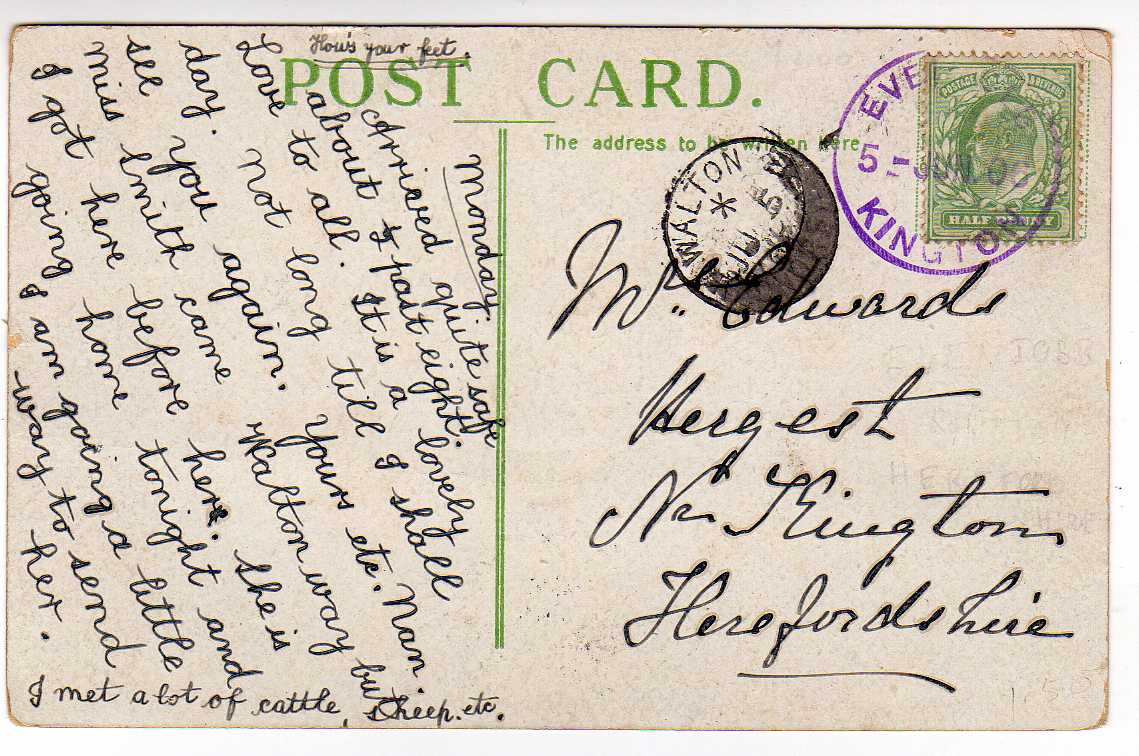 How's your feet.
POST CARD.
The address to be written here
Monday
Arrived quite safe
about past eight.
Love to all. It is a lovely
day. Not long till I shall
see you again. Yours etc. Nan
Miss Smith came Walton way but
I got here before her. She is
going home tonight and
I am going a little
way to send
her.
I met a lot of cattle, sheep. etc.
WALTON
KINGTON
POSTAGE & REVENUE
HALF PENNY
Mrs. Edwards
Hergest
Nr Kington
Herefordshire